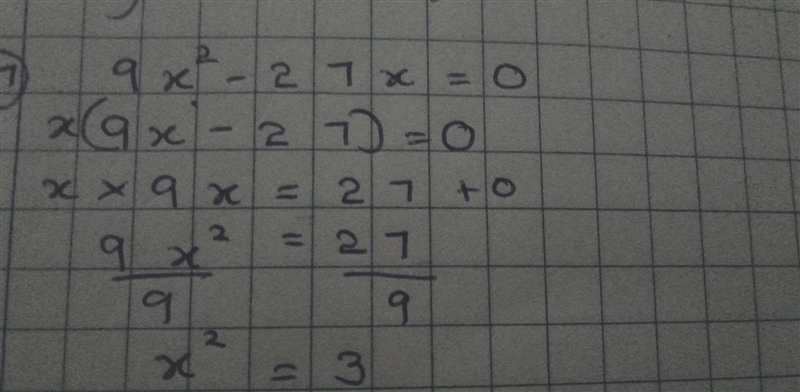 9x² - 27x = 0
x(9x - 27) = 0
x × 9x = 27 + 0
9x² = 27
9 9
x² = 3